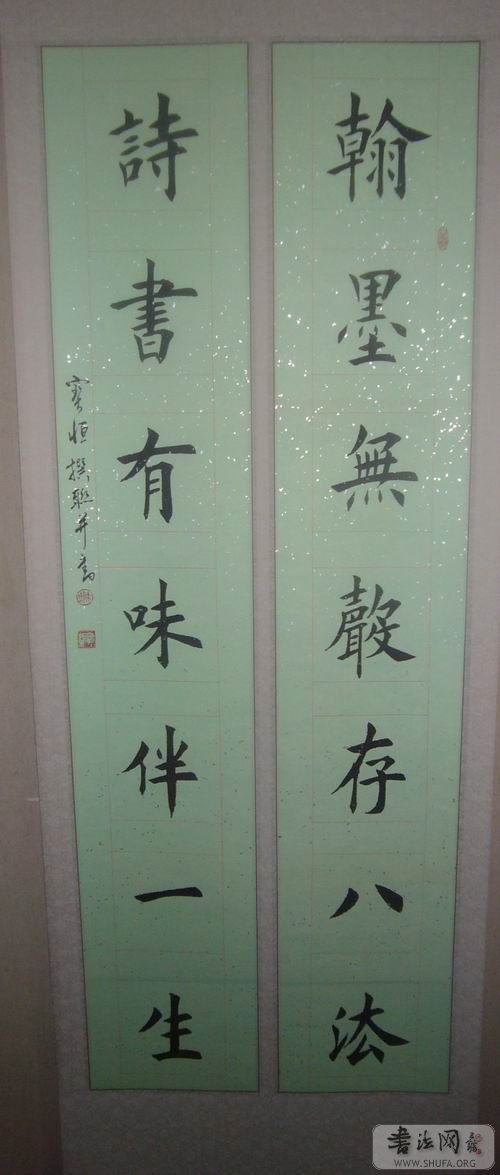 翰墨無聲存八法
詩書有味伴一生
寶恒撰聯并書
書法网
WWW.SHUFA.ORG